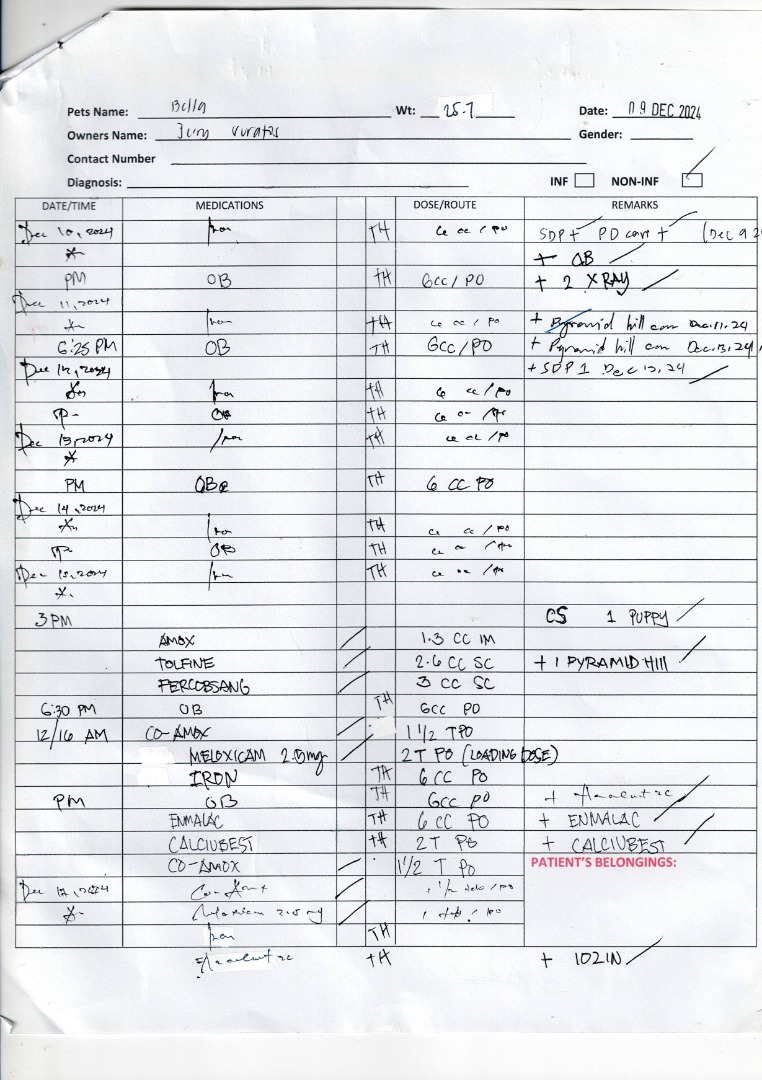 Pets Name: Bella Wt: 25.7 Date: 09 DEC 2024
Owners Name: Gender:
Contact Number
Diagnosis: INF NON-INF
DATE/TIME MEDICATIONS DOSE/ROUTE REMARKS
Dec 10, 2024 Iron TH 6 cc / PO SDP + PD cart + (Dec 9 2
+ OB
PM OB TH 6cc/PO + 2 XRAY
Dec 11, 2024
Iron TH 6 cc / PO + Pyramid hill can Dec.11.24
6:25 PM OB TH 6cc/PO + Pyramid hill can Dec.13.24
Dec 12, 2024 + SDP 1 Dec 13, 24
Iron TH 6 cc / PO
OB TH 6 cc
Dec 13, 2024 Iron TH 6 cc / PO
PM OB TH 6 CC PO
Dec 14, 2024
Iron TH 6 cc / PO
OB TH 6 cc
Dec 15, 2024 Iron TH 6 cc
3 PM CS 1 PUPPY
AMOX 1.3 CC IM
TOLFINE 2.6 CC SC + 1 PYRAMID HILL
PERCOBSANG 3 CC SC
6:30 PM OB TH 6CC PO
12/16 AM CO-AMOX 1 1/2 T PO
MELOXICAM 2.5mg 2 T PO (LOADING DOSE)
IRON TH 6 CC PO
PM OB TH 6cc PO +
ENMALAC TH 6 CC PO + ENMALAC
CALCIUBEST TH 2 T PO + CALCIUBEST
CO-AMOX 1 1/2 T PO PATIENT'S BELONGINGS:
Co-Amox 1 1/2 /PO
Meloxicam 2.5 mg 1 tab / PO
Iron TH
TH +